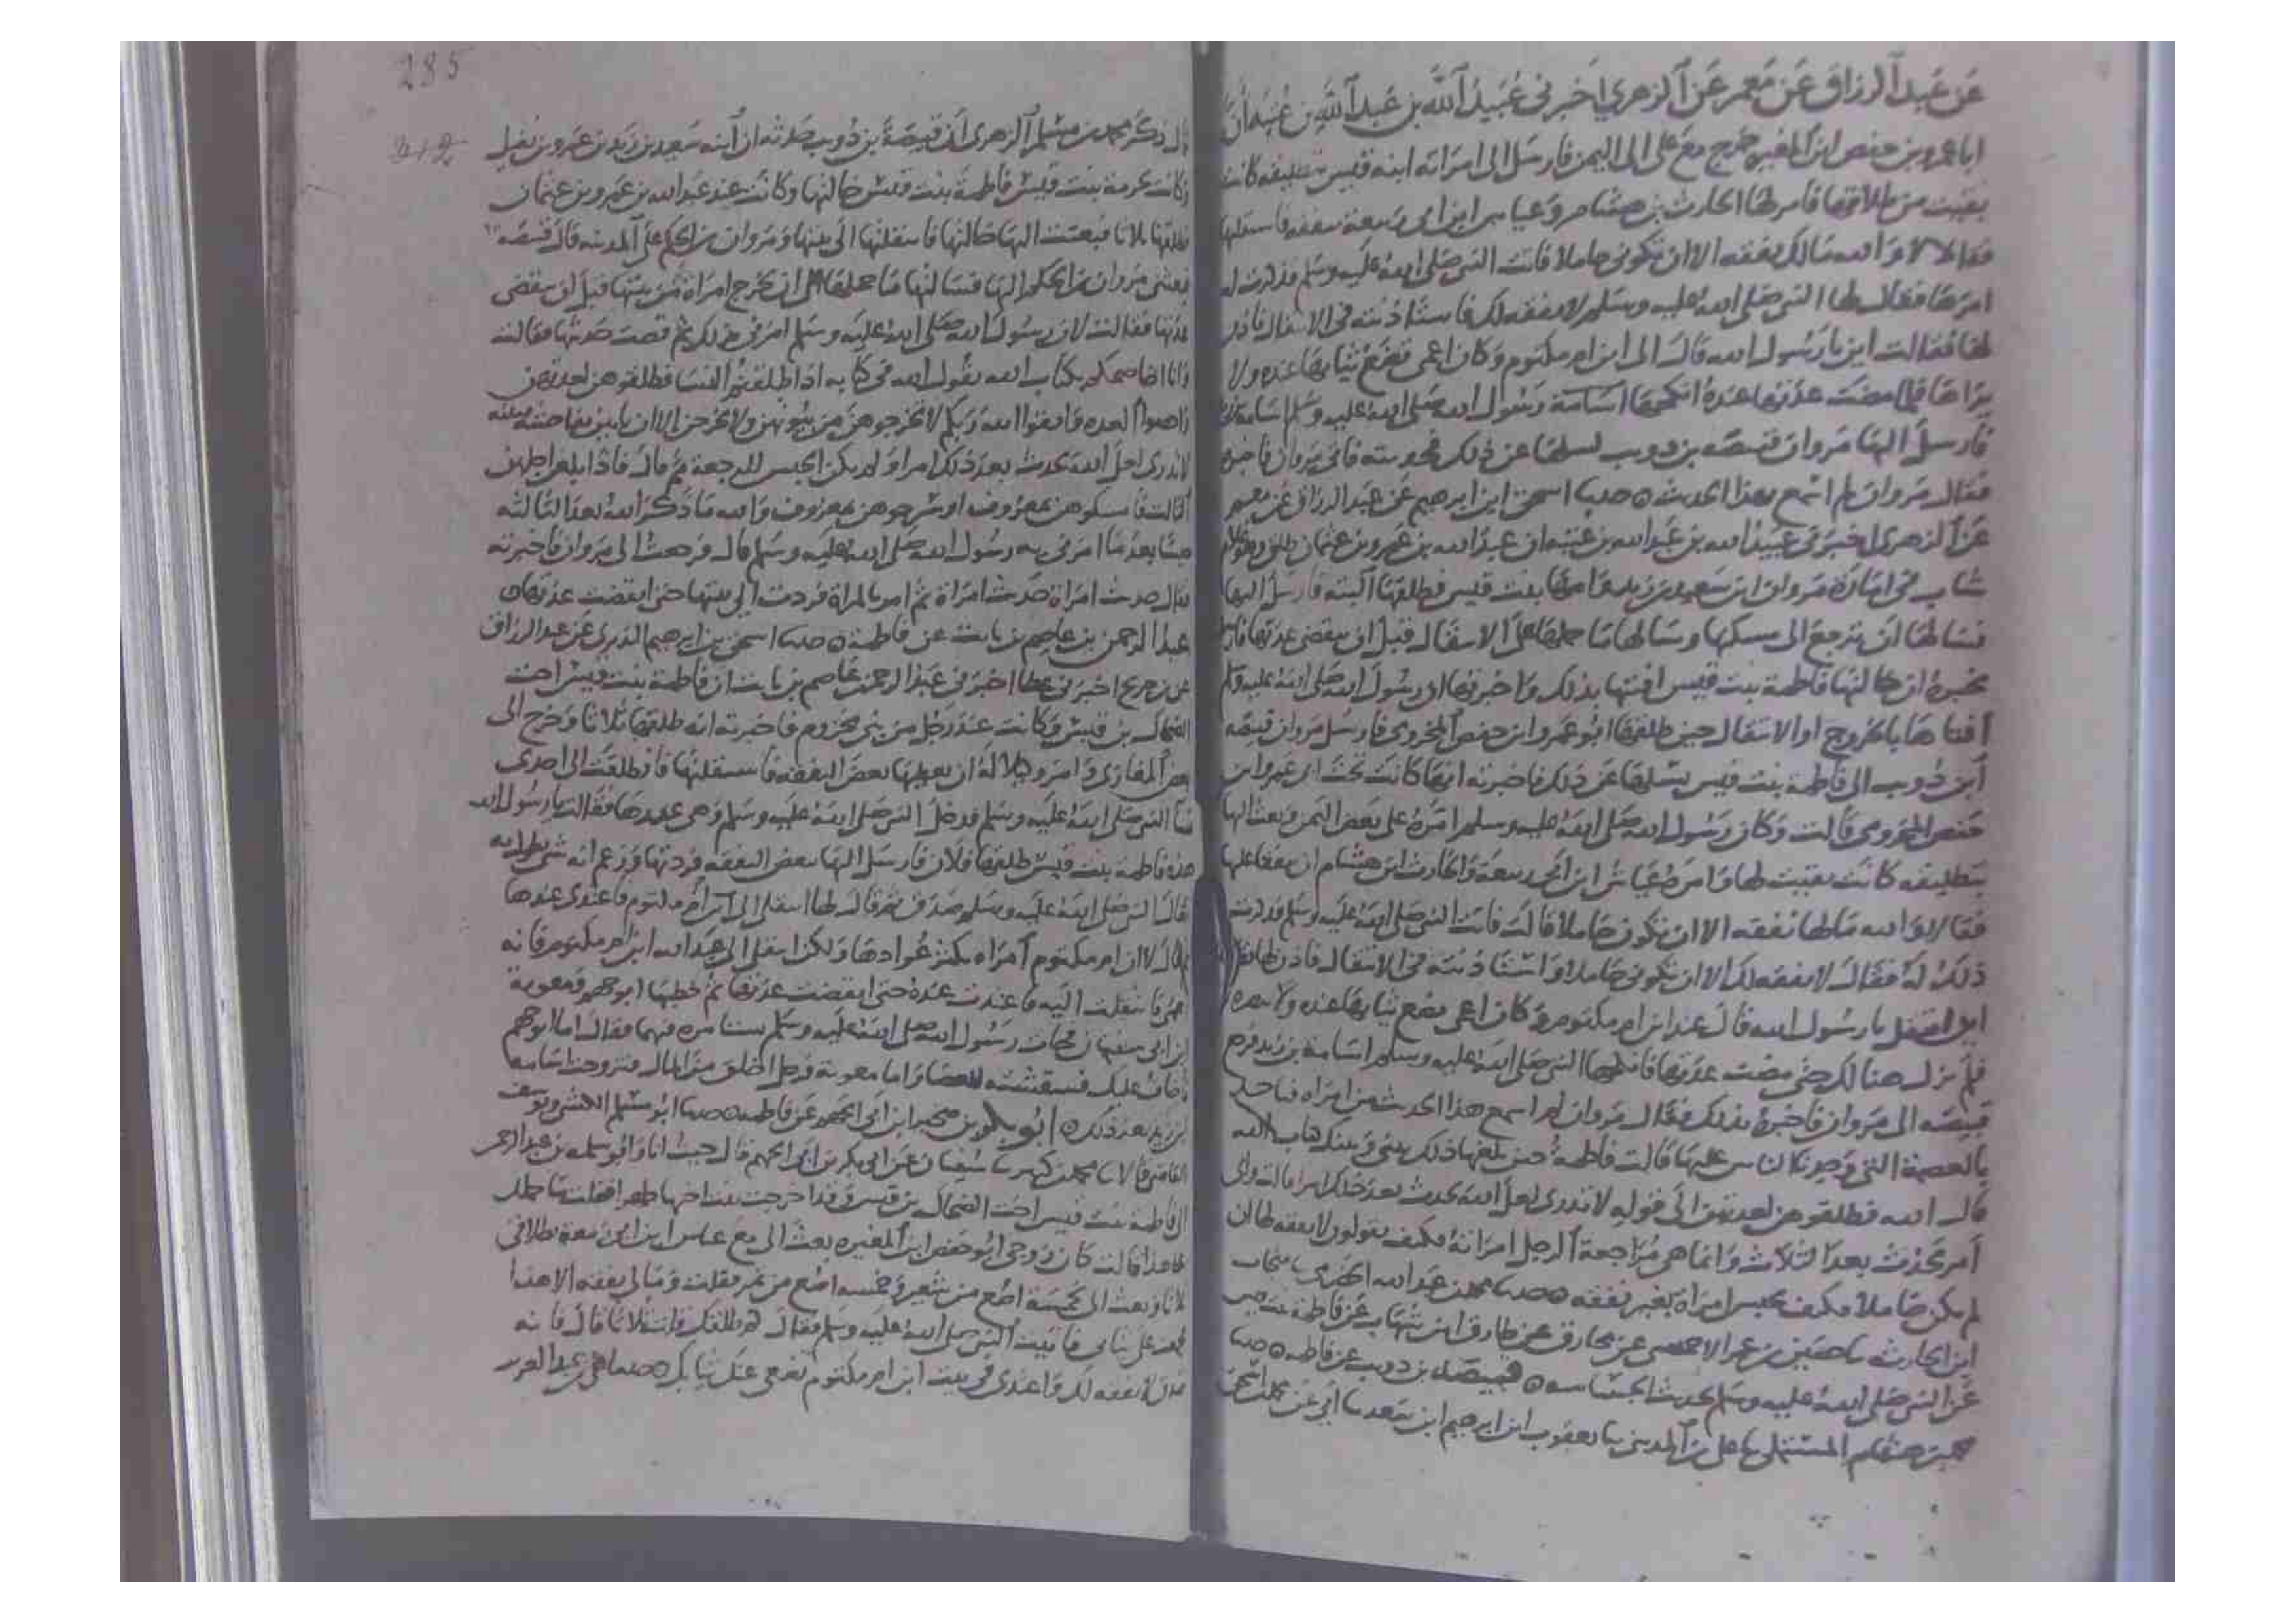 عن عبد الرزاق عن معمر عن الزهري اخبرني عبيد الله بن عبد الله بن عتبه ان
ابا عمرو بن حفص ابن المغيره خرج مع علي الى اليمن فارسل الى امراته ابنه قيس بتطليقه كانت
بقيت من طلاقها فامر لها الحارث بن هشام وعياس ابن ابي ربيعة بنفقه فاستقلتها
فقالا لا والله مالك نفقه الا ان تكوني حاملا فاتت النبي صلى الله عليه وسلم فذكرت له
امرها فقال لها النبي صلى الله عليه وسلم لا نفقه لك فاستاذنته في الانتقال فاذن
لها فقالت اين يا رسول الله قال الى ابن ام مكتوم وكان اعمى تضع ثيابها عنده ولا
يراها فلما مضت عدتها عنده انكحها اسامة رسول الله صلى الله عليه وسلم اسامة
فارسل اليها مروان قبيصه بن ذويب يسلها عن ذلك فحدثته فاتى مروان فاخبره
فقال مروان لم اسمع بهذا الحديث ه حدثنا اسحق ابن ابرهيم عن عبد الرزاق عن معمر
عن الزهري اخبرني عبيد الله بن عبد الله بن عتبه ان عبد الله بن عمرو بن عثمان طلق وهو غلام
شاب في امارة مروان ابنت سعيد بن زيد وامها بنت قيس فطلقها البته فارسل اليها
فسالها ان ترجع الى مسكنها وسالها ما حملها على الانتقال قبل ان تنقضي عدتها
تخبره ان خالتها فاطمة بنت قيس افتتها بذلك واخبرتها ان رسول الله صلى الله عليه وسلم
افتاها بالخروج او الانتقال حين طلقها ابو عمرو ابن حفص المخزومي فارسل مروان قبيصه
ابن ذويب الى فاطمة بنت قيس يسلها عن ذلك فاخبرته انها كانت تحت ابي عمرو ابن
حفص المخزومي قالت وكان رسول الله صلى الله عليه وسلم امره على بعض اليمن وبعث اليها
بتطليقه كانت بقيت لها وامر عياش ابن ابي ربيعة والحارث ابن هشام ان ينفقا عليها
فقالا والله مالها نفقه الا ان تكون حاملا قالت فاتت النبي صلى الله عليه وسلم فذكرت
ذلك له فقال لا نفقه لك الا ان تكوني حاملا واستاذنته في الانتقال فاذن لها
اين انتقل يا رسول الله قال عند ابن ام مكتوم وكان اعمى تضع ثيابها عنده ولا
فلم تزل هنالك حتى مضت عدتها فانكحها النبي صلى الله عليه وسلم اسامة بن زيد فرجع
قبيصه الى مروان فاخبره بذلك فقال مروان لم اسمع هذا الحديث من امراه فساخذ
بالعصمة التي وجدنا الناس عليها قالت فاطمة حين بلغها ذلك بيني وبينك كتاب الله
قال الله فطلقوهن لعدتهن الى قوله لا تدري لعل الله يحدث بعد ذلك امرا قالت واي
امر يحدث بعد الثلاث وانما هي مراجعة الرجل امراته فكيف يقولون لا نفقه لها ان
لم تكن حاملا فكيف يحبس امراة بغير نفقه ه حدثنا محمد بن عبد الله الحضرمي نا منجاب
ابن الحارث نا حصين بن عمر الاحمسي عن مخارق عن طارق ابن شهاب عن فاطمة بنت قيس
عن النبي صلى الله عليه وسلم بحديث الجساسه ه قبيصه بن ذويب عن فاطمه ه حدثنا
محمد بن هشام المستملي نا علي بن المديني نا يعقوب ابن ابرهيم ابن سعد نا ابي عن محمد بن اسحق
285
قال ذكر محمد بن مسلم الزهري ان قبيصة بن ذويب حدثه ان ابنه سعيد بن زيد بن عمرو بن نفيل
وكانت حرمة بنت قيس فاطمة بنت قيس خالتها وكانت عند عبد الله بن عمرو بن عثمان
فطلقها ثلاثا فبعثت اليها خالتها فانتقلتها الى بيتها ومروان بن الحكم على المدينه قال قبيصه
فبعثني مروان بن الحكم اليها فسالتها ما حملها على ان تخرج امراة من بيتها قبل ان تنقضي
عدتها فقالت لان رسول الله صلى الله عليه وسلم امرني بذلك ثم قصت حديثها فقالت
وانا اخاصمكم بكتاب الله يقول الله في كتابه اذا طلقتم النسا فطلقوهن لعدتهن
واحصوا العده واتقوا الله ربكم لا تخرجوهن من بيوتهن ولا يخرجن الا ان ياتين بفاحشة مبينه
لا تدري لعل الله يحدث بعد ذلك امرا ولم يكن الحبس للرجعة ثم قال فاذا بلغن اجلهن
الثالث فامسكوهن بمعروف او سرحوهن بمعروف والله ما ذكر الله بعد الثالثه
حبسا بعد ما امرني به رسول الله صلى الله عليه وسلم قال فرجعت الى مروان فاخبرته
فقال حديث امراة حديث امراة ثم امر بالمراة فردت الى بيتها حتى انقضت عدتها ه
عبد الرحمن بن عاصم بن ثابت عن فاطمة ه حدثنا اسحق بن ابرهيم الدبري عن عبد الرزاق
عن بن جريج اخبرني عطا اخبرني عبد الرحمن بن عاصم بن ثابت ان فاطمة بنت قيس اخت
الضحاك بن قيس وكانت عند رجل من بني مخزوم فاخبرته انه طلقها ثلاثا وخرج الى
بعض المغازي وامر وكيلا له ان يعطيها بعض النفقه فاستقلتها فانطلقت الى احدى
نسا النبي صلى الله عليه وسلم فدخل النبي صلى الله عليه وسلم وهي عندها فقالت يا رسول الله
هذه فاطمة بنت قيس طلقها فلان فارسل اليها ببعض النفقه فردتها وزعم انه شي تطول به
فقال النبي صلى الله عليه وسلم صدق ثم قال لها انتقلي الى ابن ام مكتوم فاعتدي عندها
ثم قال لا ان ام مكتوم امراه يكثر عوادها ولكن انتقلي الى عبد الله ابن ام مكتوم فانه
اعمى فانتقلت اليه فاعتدت عنده حتى انقضت عدتها ثم خطبها ابو جهم ومعوية
ابن ابي سفيان فجات رسول الله صلى الله عليه وسلم تستامره فيهما فقال اما ابو جهم
اخاف عليك قسقسته للعصا واما معوية فرجل اخلق من المال فتزوجت اسامه
ابن زيد بعد ذلك ه ابو بكر بن صخير ابن ابي الجهم عن فاطمه ه حدثنا ابو مسلم الكشي ويوسف
القاضي قالا نا محمد بن كثير نا سفيان عن ابي بكر بن ابي الجهم قال جيت انا وابو سلمه بن عبد الرحمن
الى فاطمة بنت قيس اخت الضحاك بن قيس وقد اخرجت بنت اخيها ظهرا فقلت ما حملك
على هذا قالت كان زوجي ابو حفص ابن المغيره بعث الى مع عياش ابن ابي ربيعة بطلاقي
ثلاثا وبعث الى بخمسة اصع من شعير وخمسه اصع من تمر فقلت ومالي نفقه الا هذا
فجمعت علي ثيابي فاتيت النبي صلى الله عليه وسلم فقال كم طلقك قلت ثلاثا قال فانه
صدق لا نفقه لك واعتدي في بيت ابن ام مكتوم تضعي عنك ثيابك ه حدثنا علي بن عبد العزيز